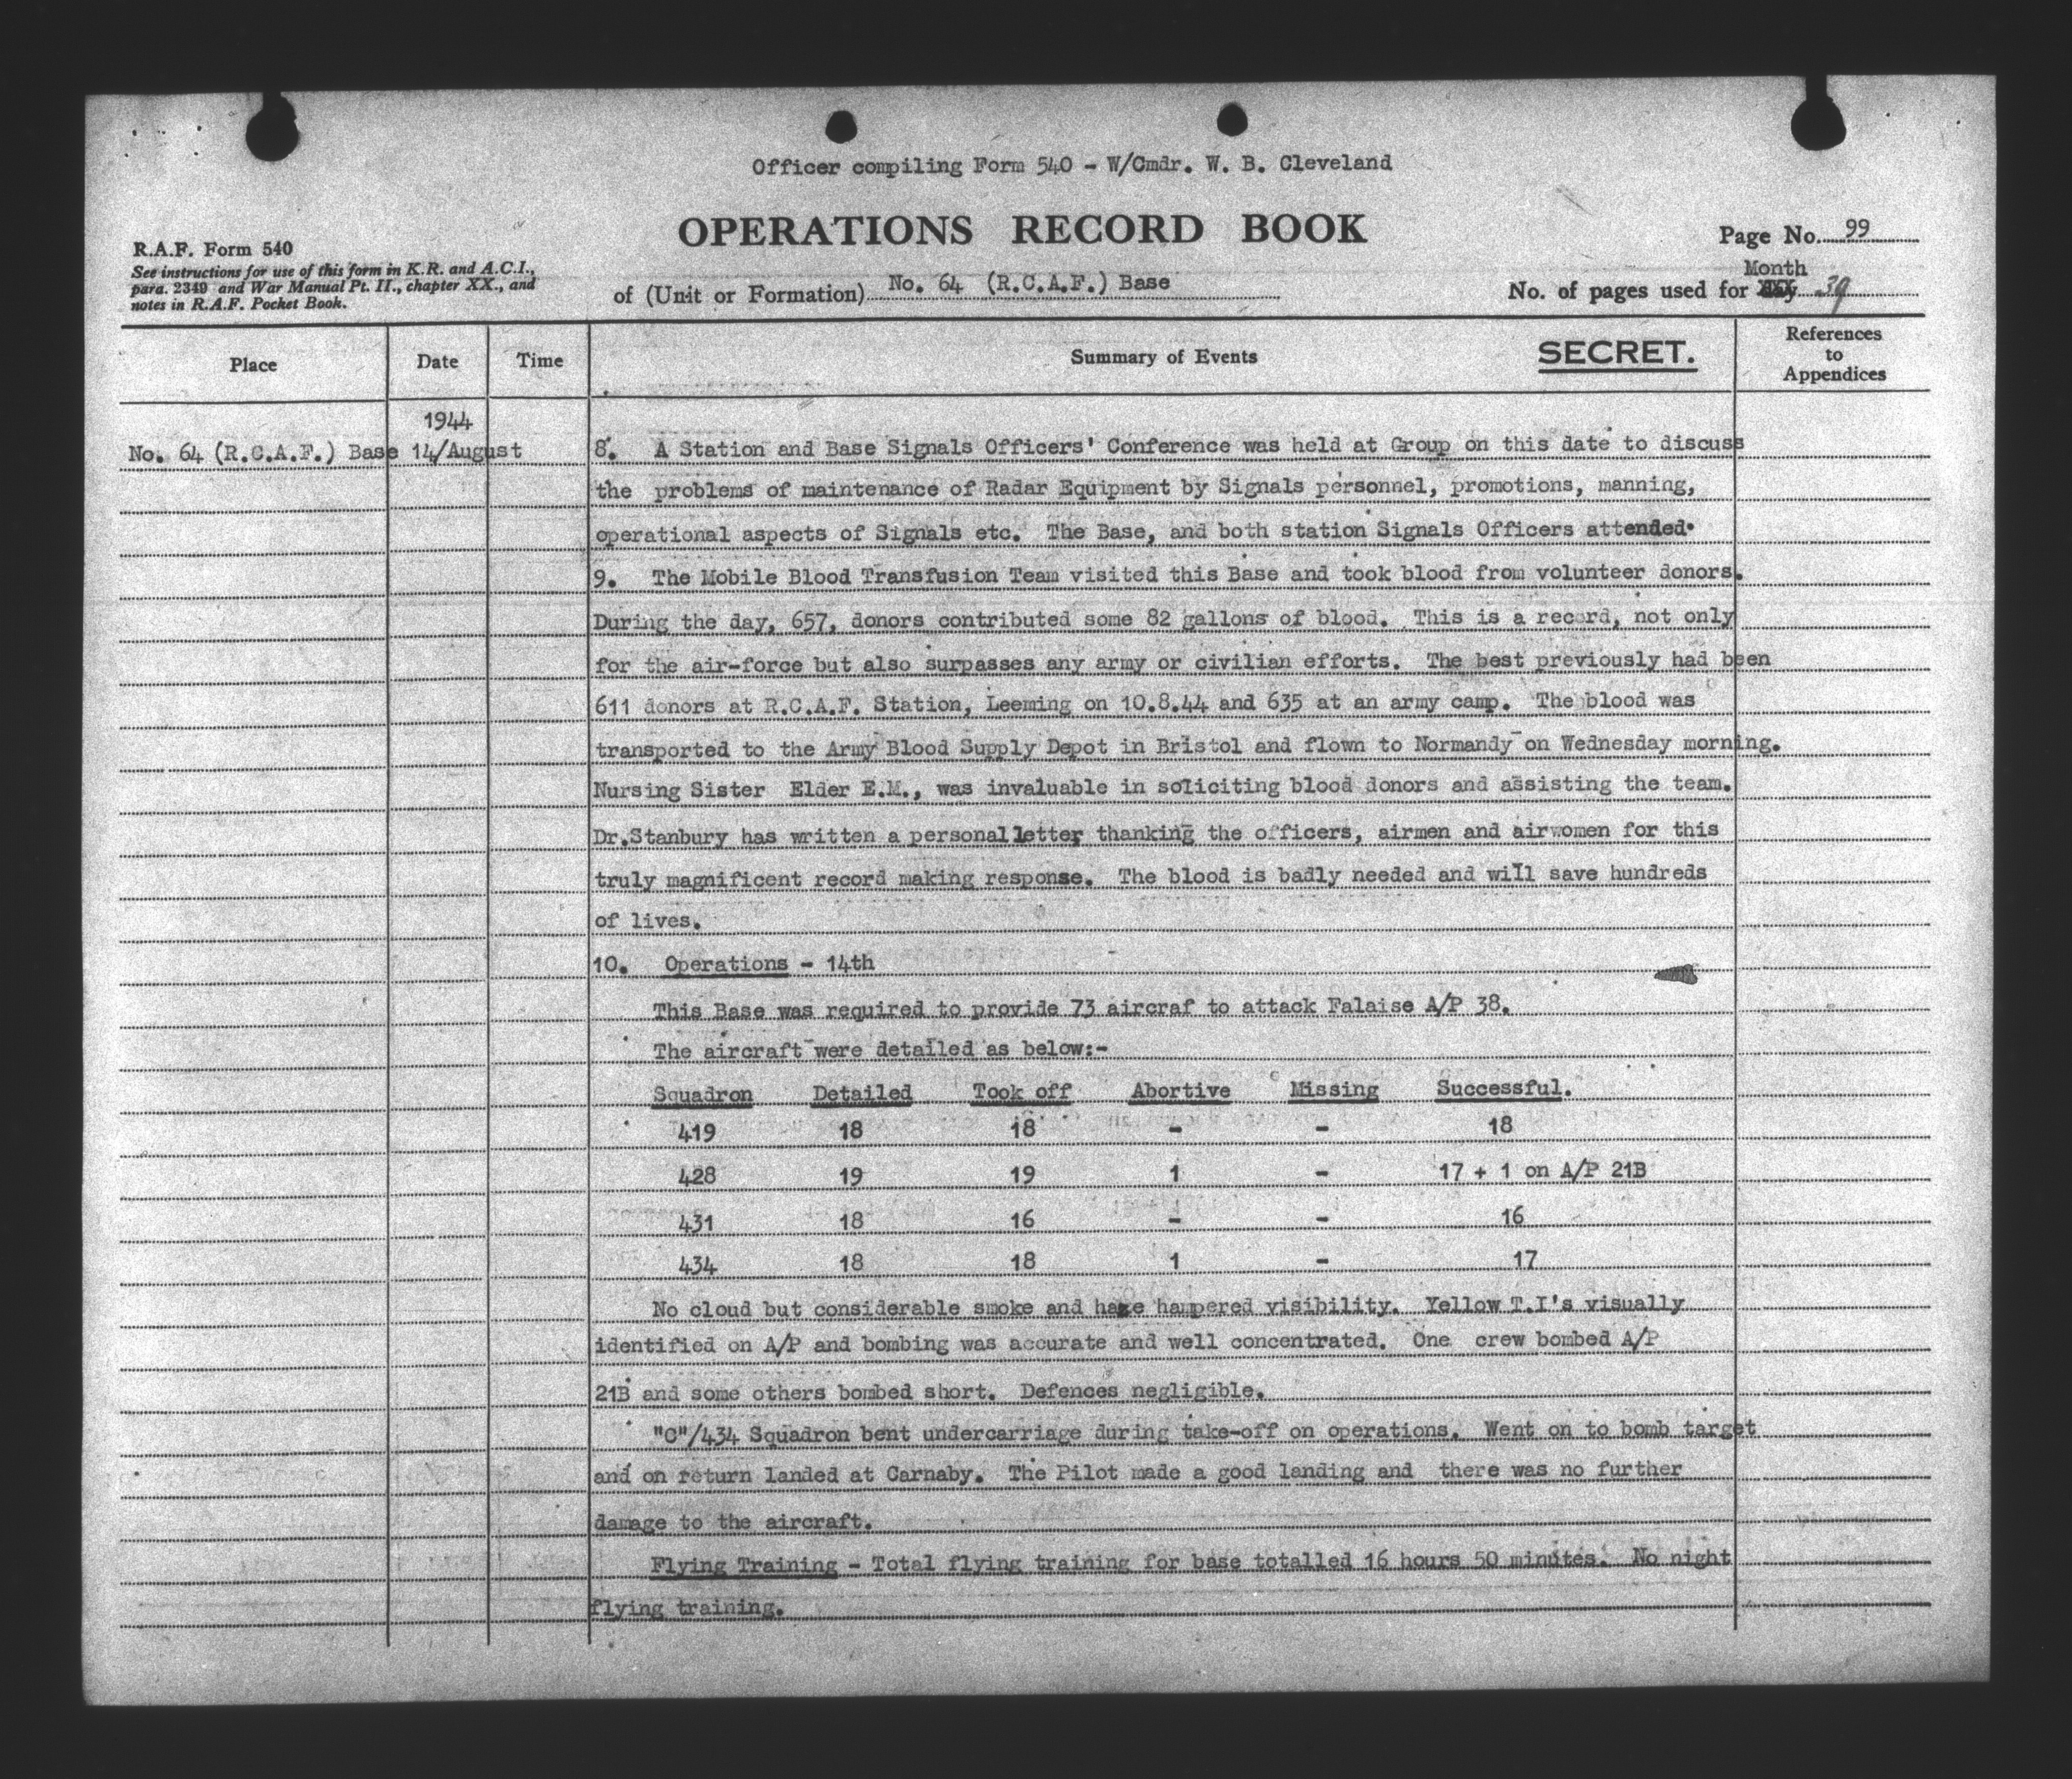 Officer compiling Form 540 - W/Cmdr. W. B. Cleveland
OPERATIONS RECORD BOOK
Page No. 99
R.A.F. Form 540
See instructions for use of this form in K.R. and A.C.I.,
para. 2349 and War Manual Pt. II., chapter XX., and
notes in R.A.F. Pocket Book.
of (Unit or Formation) No. 64 (R.C.A.F.) Base
Month
No. of pages used for day 39
Place Date Time Summary of Events SECRET. References to Appendices
1944
No. 64 (R.C.A.F.) Base 14/August 8. A Station and Base Signals Officers' Conference was held at Group on this date to discuss
the problems of maintenance of Radar Equipment by Signals personnel, promotions, manning,
operational aspects of Signals etc. The Base, and both station Signals Officers attended.
9. The Mobile Blood Transfusion Team visited this Base and took blood from volunteer donors.
During the day, 657, donors contributed some 82 gallons of blood. This is a record, not only
for the air-force but also surpasses any army or civilian efforts. The best previously had been
611 donors at R.C.A.F. Station, Leeming on 10.8.44 and 635 at an army camp. The blood was
transported to the Army Blood Supply Depot in Bristol and flown to Normandy on Wednesday morning.
Nursing Sister Elder E.M., was invaluable in soliciting blood donors and assisting the team.
Dr.Stanbury has written a personal letter thanking the officers, airmen and airwomen for this
truly magnificent record making response. The blood is badly needed and will save hundreds
of lives.
10. Operations - 14th
This Base was required to provide 73 aircraf to attack Falaise A/P 38.
The aircraft were detailed as below:-
Squadron Detailed Took off Abortive Missing Successful.
419 18 18 - - 18
428 19 19 1 - 17 + 1 on A/P 21B
431 18 16 - - 16
434 18 18 1 - 17
No cloud but considerable smoke and haze hampered visibility. Yellow T.I's visually
identified on A/P and bombing was accurate and well concentrated. One crew bombed A/P
21B and some others bombed short. Defences negligible.
"C"/434 Squadron bent undercarriage during take-off on operations. Went on to bomb target
and on return landed at Carnaby. The Pilot made a good landing and there was no further
damage to the aircraft.
Flying Training - Total flying training for base totalled 16 hours 50 minutes. No night
flying training.